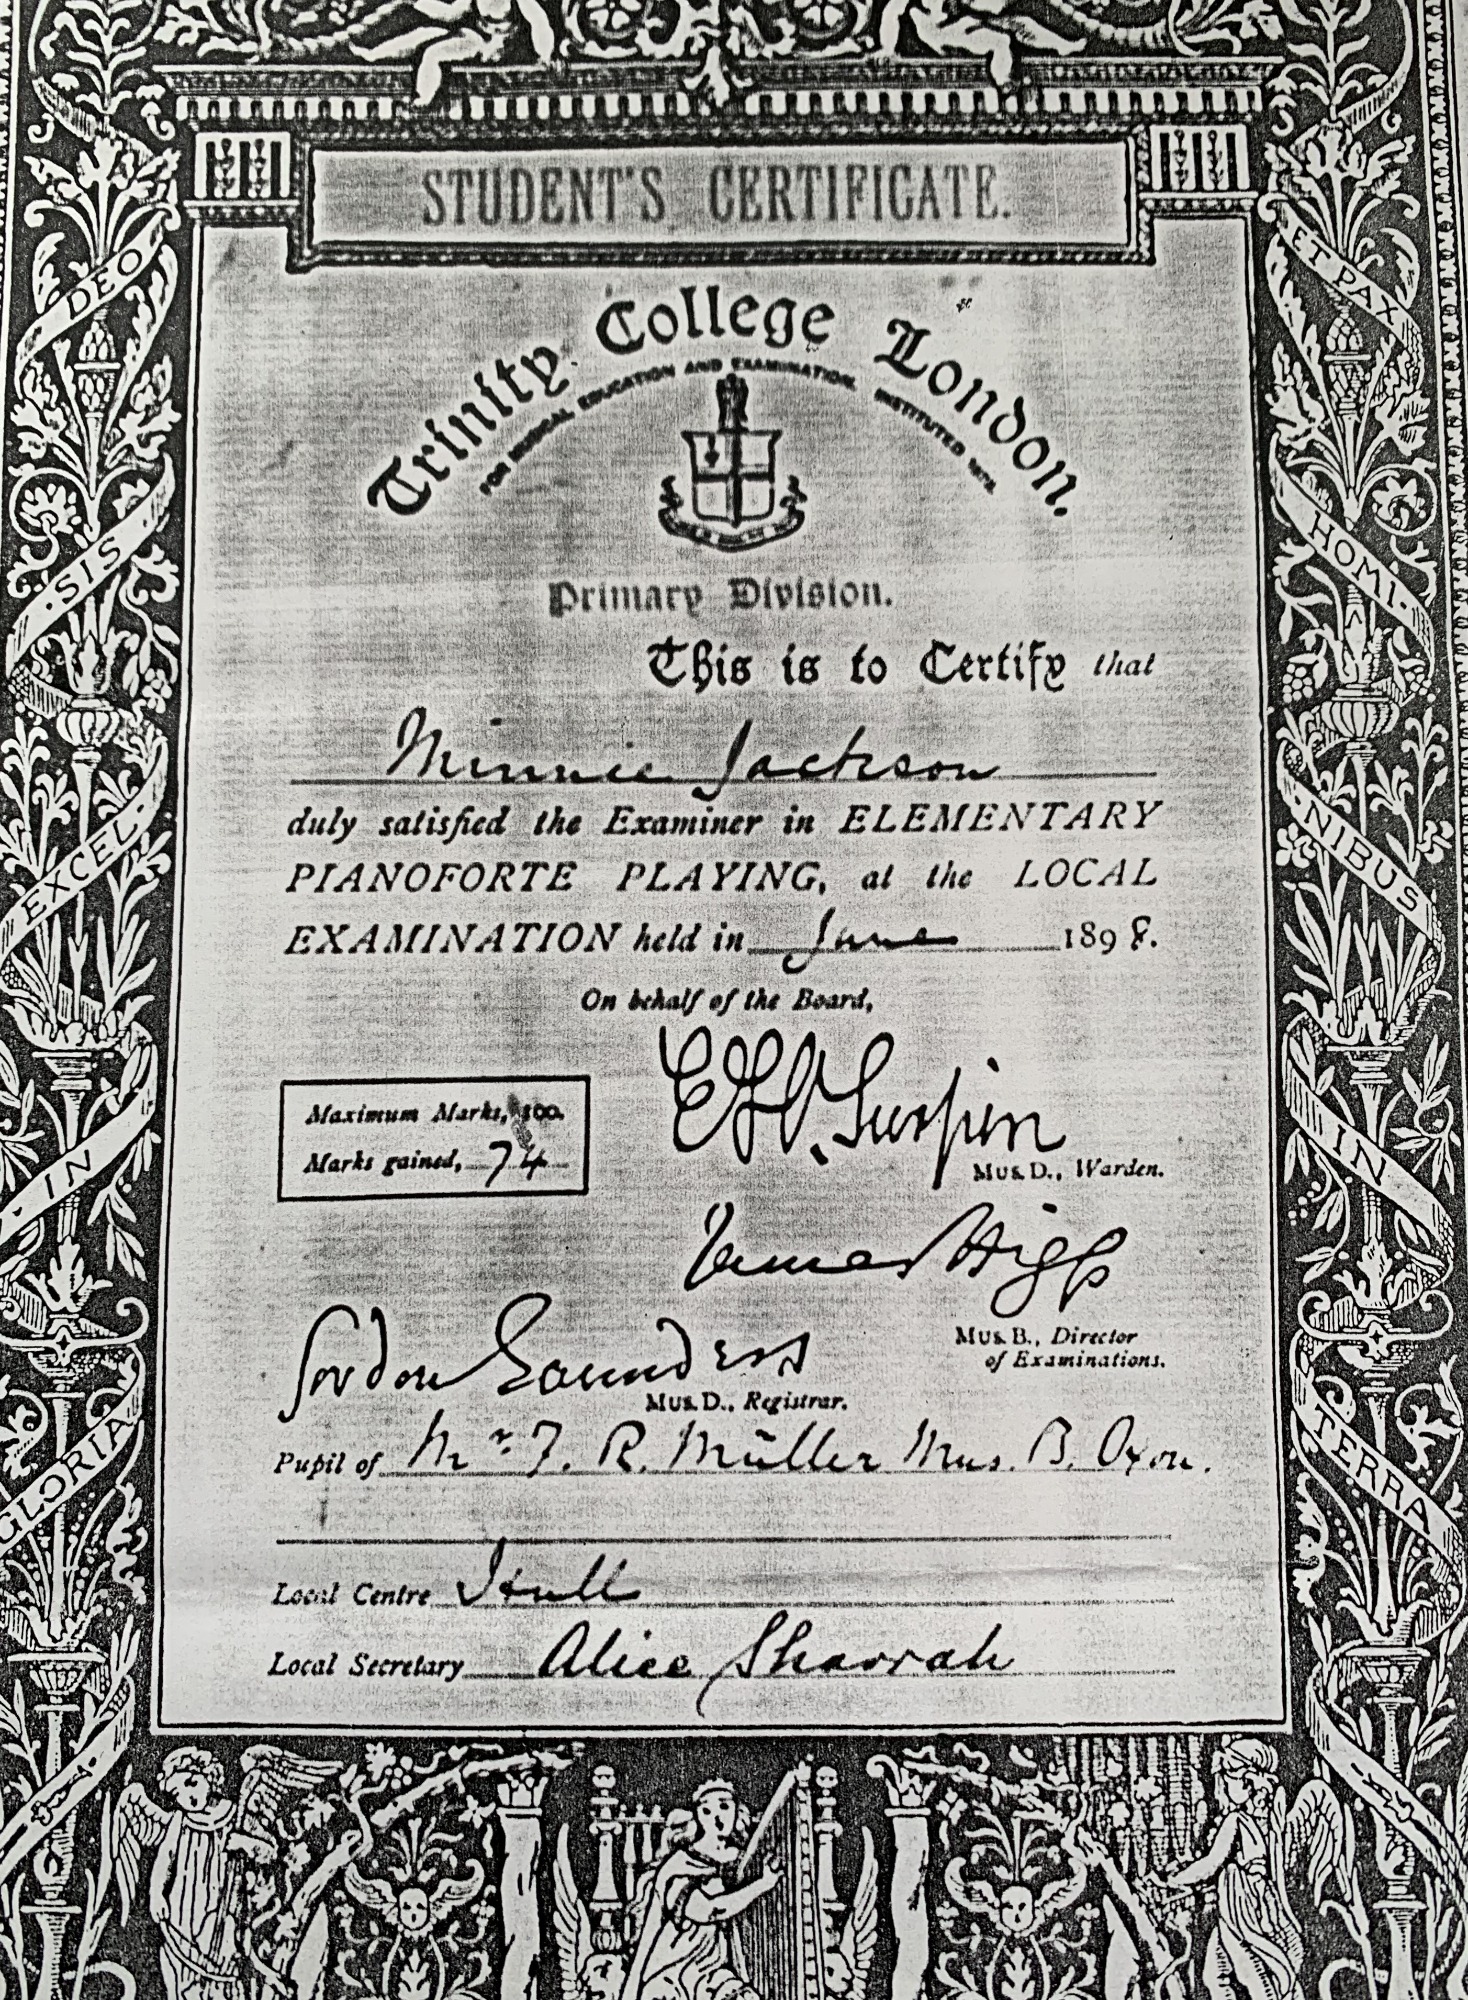 STUDENT'S CERTIFICATE.
Trinity College London.
FOR MUSICAL EDUCATION AND EXAMINATION. INSTITUTED 1872.
Primary Division.
This is to Certify that
Minnie Jackson
duly satisfied the Examiner in ELEMENTARY
PIANOFORTE PLAYING, at the LOCAL
EXAMINATION held in June 1898.
On behalf of the Board,
Maximum Marks, 100.
Marks gained, 74
E H Turpin
Mus. D., Warden.
James Higgs
Mus. B., Director
of Examinations.
Gordon Saunders
Mus. D., Registrar.
Pupil of Mr. F. R. Müller Mus. B. Oxon.
Local Centre Hull
Local Secretary Alice Sharrah
GLORIA
IN
EXCEL
SIS
DEO
ET PAX
HOMI
NIBUS
IN
TERRA